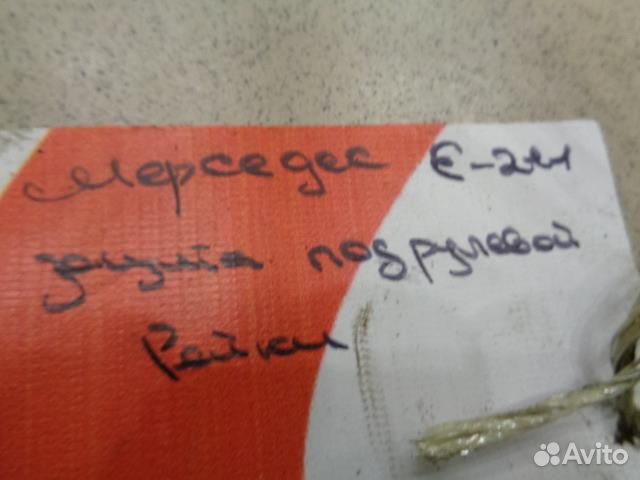 Мерседес Е-211
защита подрулевой
Рейки
Avito